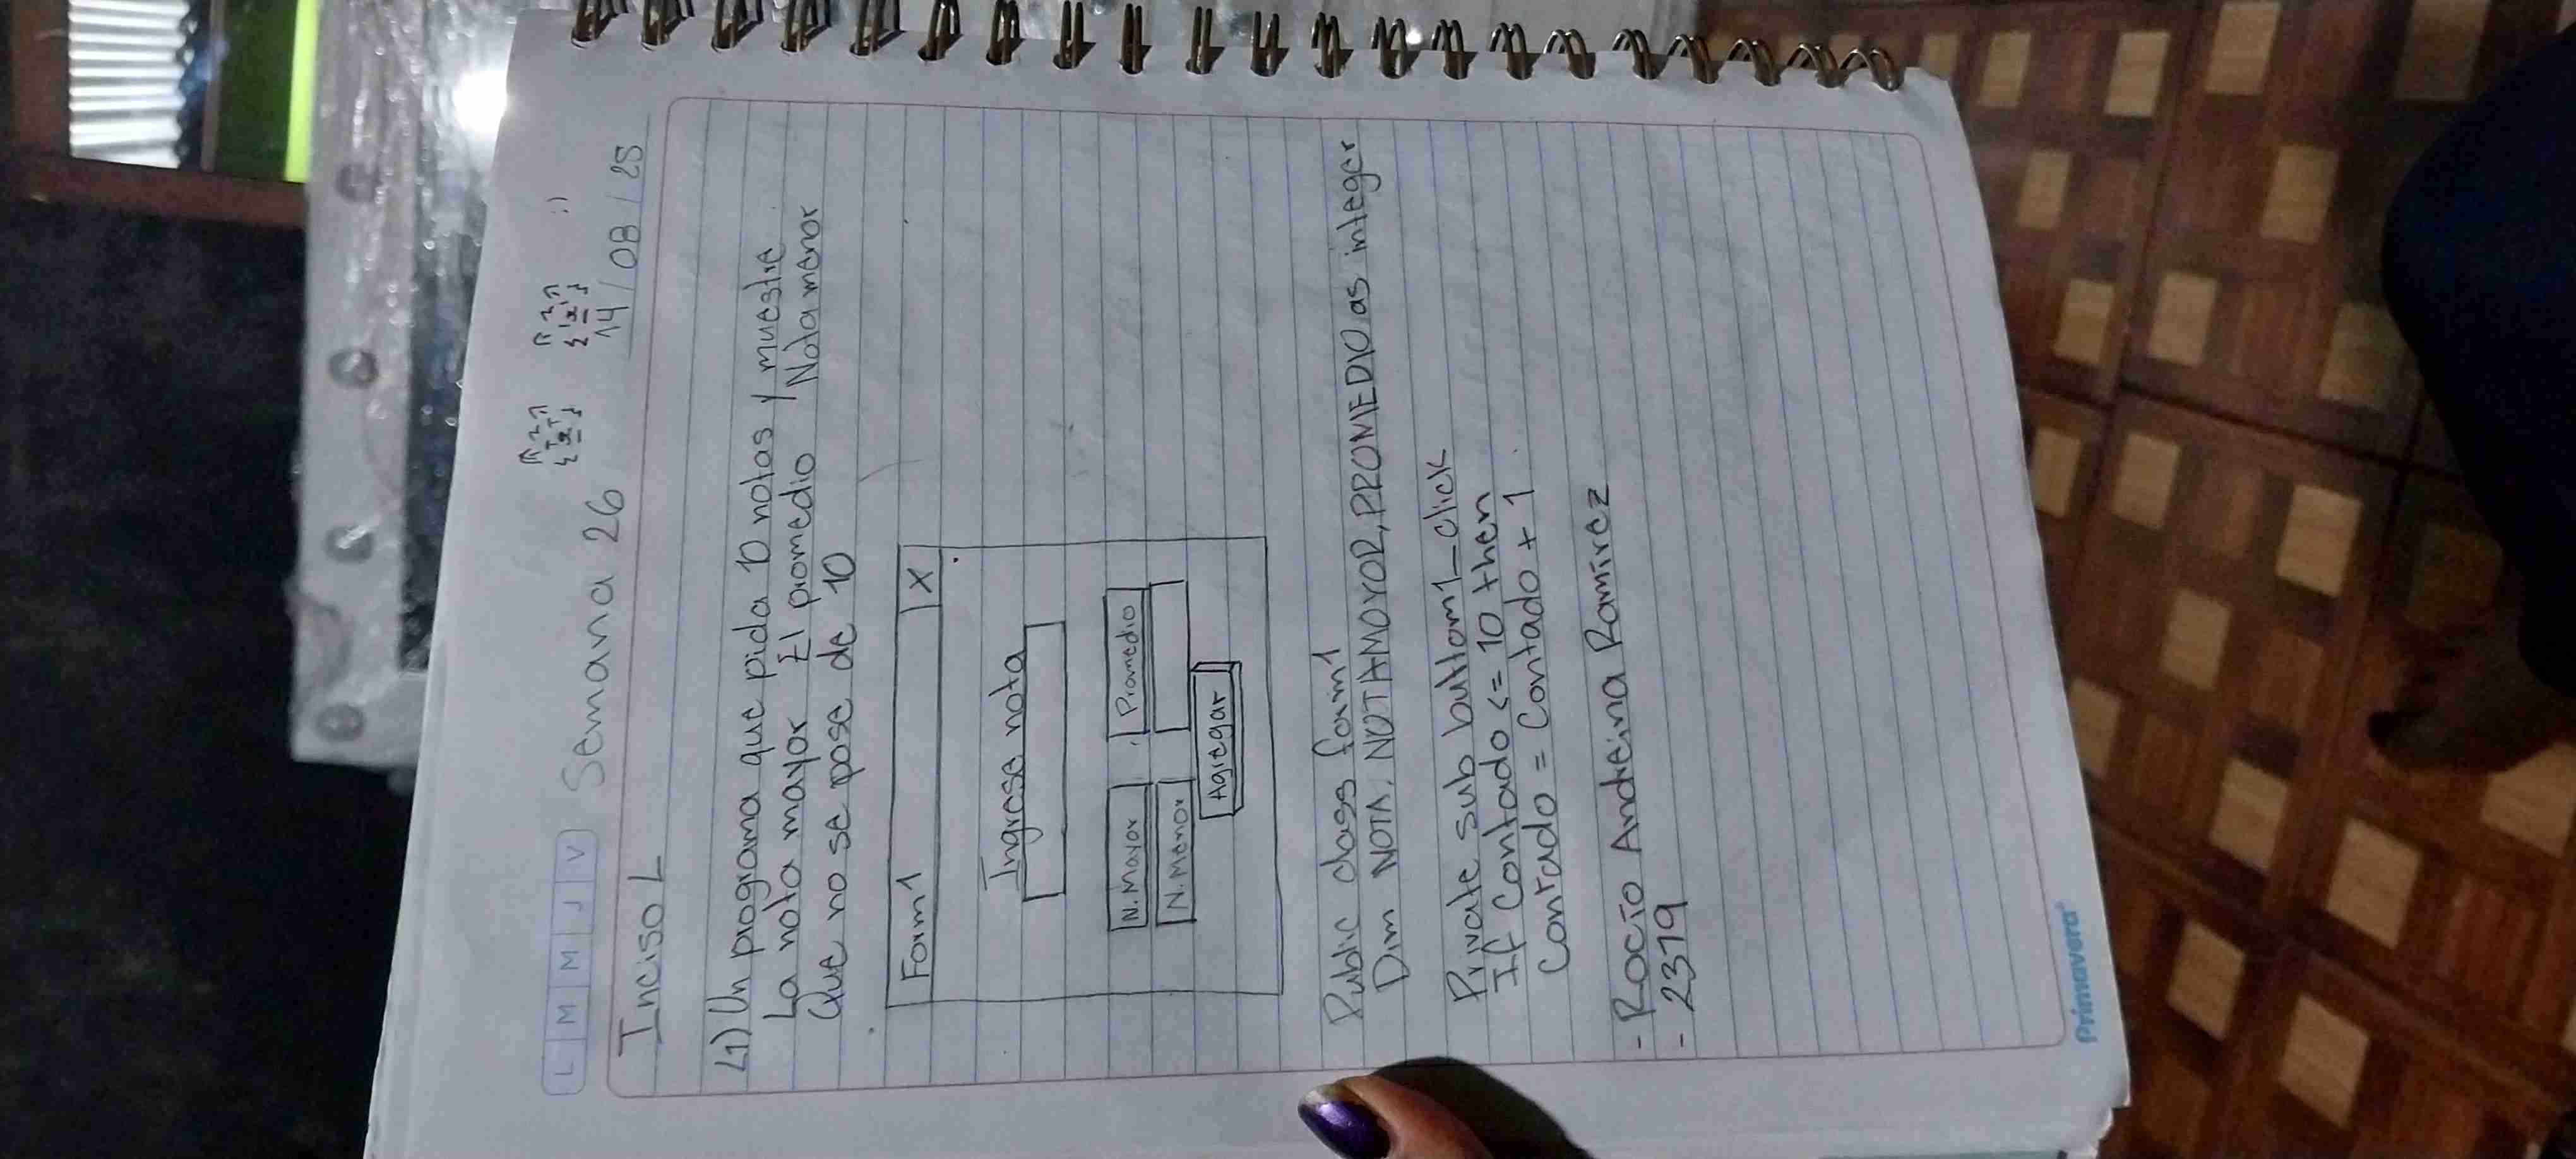 L M M J V Semana 26
14/08/25
:)
Inciso L
L1) Un programa que pida 10 notas y muestre
La nota mayor El promedio y Nota menor
Que no se pase de 10
Form1 X
Ingrese nota
N. Mayor Promedio
N. Menor
Agregar
Public class form1
Dim NOTA, NOTAMAYOR, PROMEDIO as integer
Private sub buttom1_click
If Contado <= 10 then
Contado = Contado + 1
- Rocío Andreina Ramirez
- 2319
Primavera